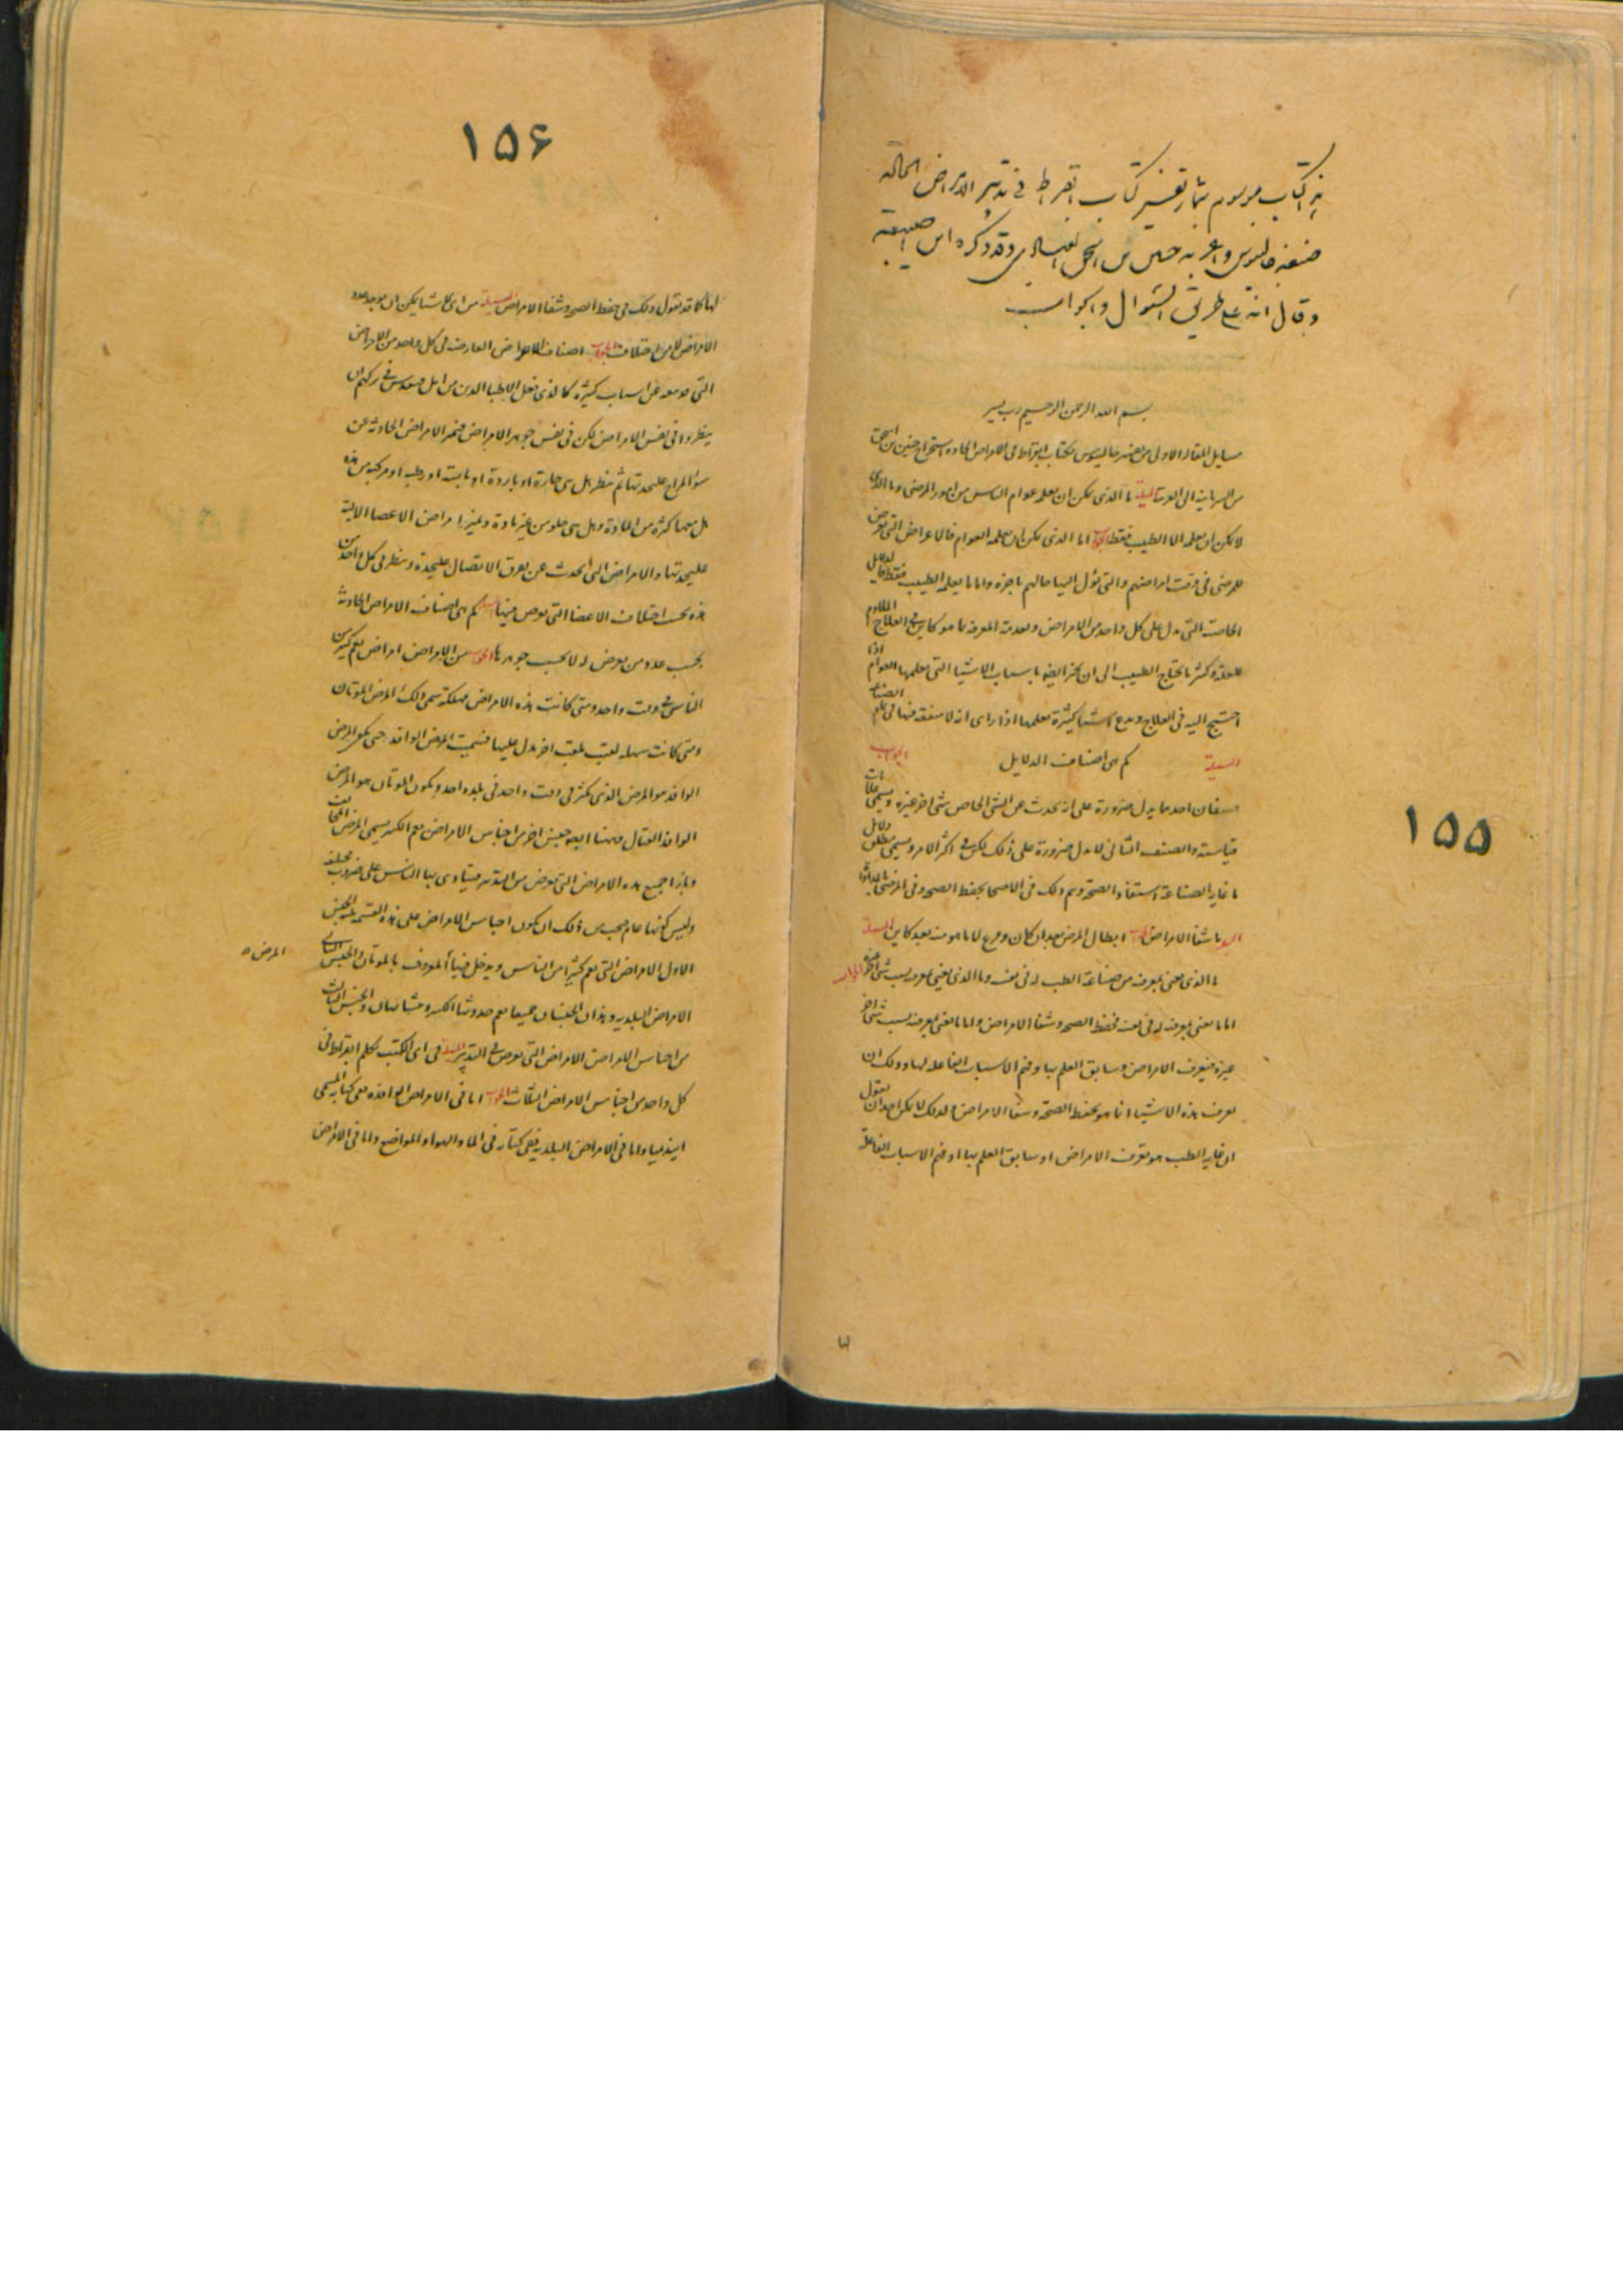 هذا كتاب موسوم بثمار تفسير كتاب ابقراط في تدبير الامراض الحادة
صنفه جالينوس وعربه حنين بن اسحق العبادي وقد ذكره ابن ابي اصيبعة
وقال انه على طريق السؤال والجواب
بسم الله الرحمن الرحيم رب يسر
مسايل المقالة الاولى من تفسير جالينوس لكتاب ابقراط في الامراض الحادة استخراج حنين بن اسحق
من السريانية الى العربية المسئلة ما الذي يمكن ان يعلمه عوام الناس من امور المرضى وما الذي
لا يمكن ان يعلمه الا الطبيب فقط الجواب اما الذي يمكن ان يعلمه العوام فالاعراض التي تعرض
للمرضى في وقت امراضهم والتي يؤل اليها حالهم باخره واما ما يعلمه الطبيب فقط فالدلايل
الخاصة التي تدل على كل واحد من الامراض وبعدها المعرفة بما هو كاين في العلاج الملاوم
للعلة وكثيرا ما يحتاج الطبيب الى ان يخبر ايضا باسباب الاشيا التي يعلمها العوام اذا
احتيج اليه في العلاج ويدع اشيا كثيرة يعلمها اذا راى انه لا منفعة فيها في تمام الصناعة
المسئلة كم هي اصناف الدلايل الجواب
صنفان احدهما يدل ضرورة على انه يحدث عن الشي الخاص شي اخر غيره ويسمى علامات
قياسية والصنف الثاني لا يدل ضرورة على ذلك لكن في اكثر الامر ويسمى دلايل مطلق
ما غاية الصناعة استفادة الصحة ويتم ذلك في الاصحا بحفظ الصحة وفي المرضى بالمداواة
المسئلة ما شفا الامراض الجواب ابطال المرض بعد ان كان ومنع لما هو منه بعد كاين المسئلة
ما الذي يعنى بمعرفته من صناعة الطب له في نفسه وما الذي يعنى بمعرفته بسبب شي اخر غيره الجواب
اما ما يعنى بمعرفته له في نفسه فحفظ الصحة وشفا الامراض واما ما يعنى بمعرفته بسبب شي اخر
غيره فتعرف الامراض وسابق العلم بها وفهم الاسباب الفاعلة لها وذلك ان
تعرف هذه الاشيا انما هو بحفظ الصحة وشفا الامراض ولذلك لا يمكن احد ان يقول
ان غاية الطب هو تعرف الامراض او سابق العلم بها او فهم الاسباب الفاعلة
١٥٥
١٥۶
لها كما قد نقول ذلك في حفظ الصحة وشفا الامراض المسئلة من اي الاشيا يمكن ان يوجد عدد
الامراض الجواب اصناف الامراض العارضة في كل واحد من الامراض
التي عن اسباب كثيرة كالذي فعل الاطبا الذين من اهل قنيدس في تركهم ان
ينظروا في نفس الامراض لكن في نفس جوهر الامراض فتميز الامراض الحادثة عن
سو المزاج على حدتها ثم تنظر هل هي حارة او باردة او يابسة او رطبة او مركبة من هذه
هل معها كثرة من المادة وهل هي خلو من غير مادة وتميز امراض الاعضا الالية
على حدتها والامراض التي تحدث عن تفرق الاتصال على حدة وتنظر في كل واحد من
هذه بحسب اختلاف الاعضا التي تعرض فيها المسئلة كم هي اصناف الامراض الحادثة
بحسب عدد من تعرض له لا بحسب جوهرها الجواب من الامراض امراض تعم كثيرا من
الناس في وقت واحد ومتى كانت هذه الامراض مهلكة سمي ذلك المرض الموتان
ومتى كانت سهلة لقبت بلقب اخر يدل عليها فسميت المرض الوافد حتى يكون المرض
الوافد هو المرض الذي يكثر في وقت واحد في بلد واحد ويكون الموتان هو المرض
الوافد القتال وههنا ايضا جنس اخر من اجناس الامراض يسمى المرض المختلف
وبازا جميع هذه الامراض التي تعرض من التدبير فيتاذى بها الناس على ضروب مختلفة
وليس كونها عام فيجب من ذلك ان يكون اجناس الامراض على هذه القسمة ثلثة الجنس
الاول الامراض التي تعم كثيرا من الناس ويدخل فيها المعروف بالموتان والجنس الثاني المرض ه
الامراض البلدية وهذان الجنسان جميعا يعم حدوثها والجنس الثالث
من اجناس الامراض الامراض التي تعرض في التدبير المسئلة في اي الكتب تكلم ابقراط في
كل واحد من اجناس الامراض الثلاث الجواب اما في الامراض الوافدة ففي كتابه المسمى
ابيذيميا واما في الامراض البلدية ففي كتابه في الما والهوا والمواضع واما في الامراض